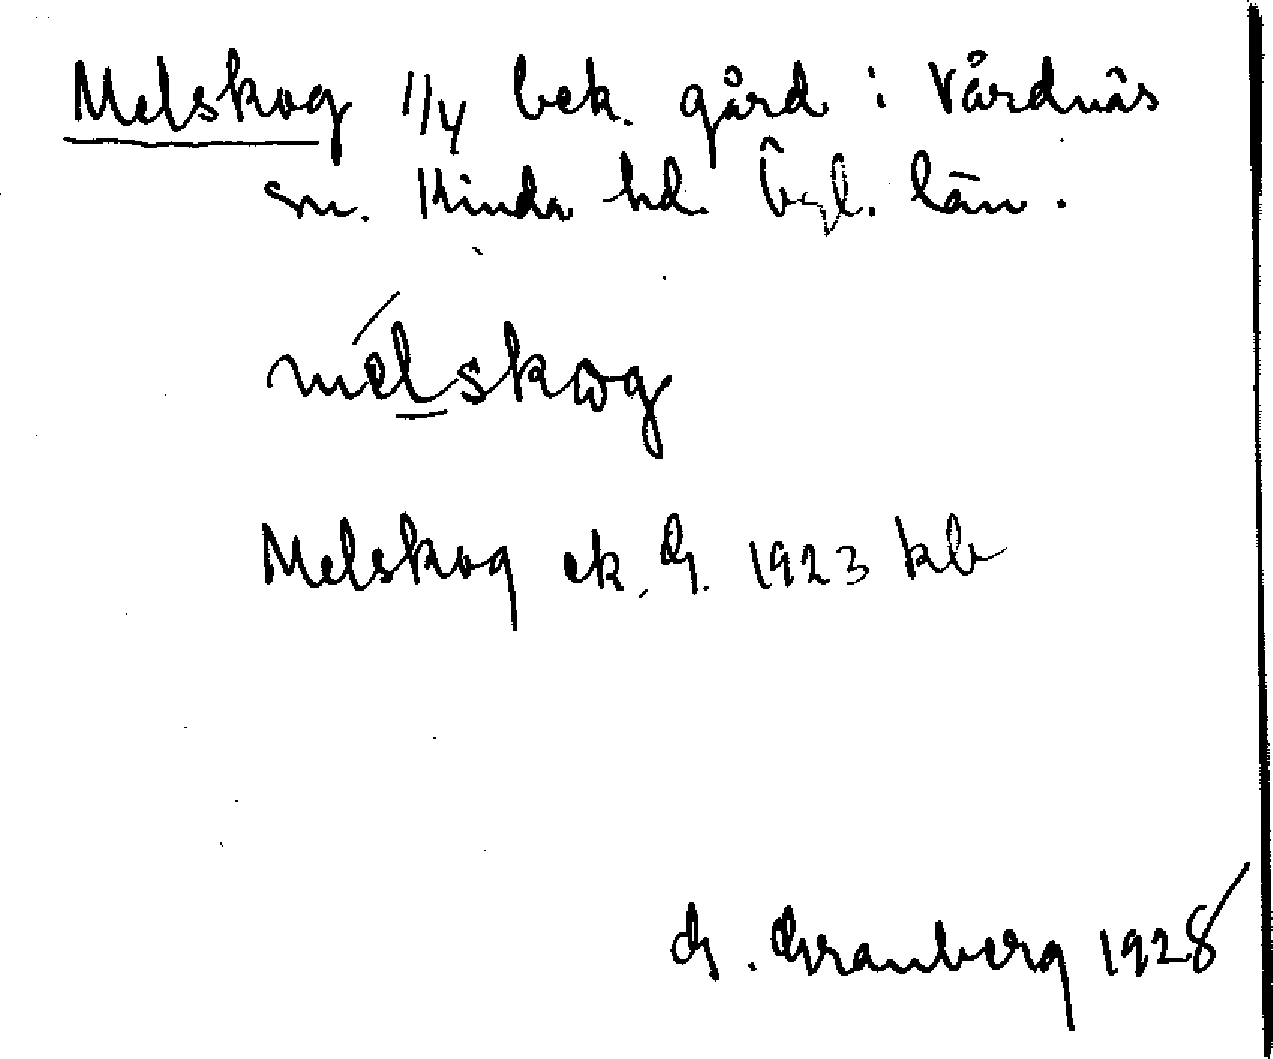 Melskog 1/4 bek. gård i Vårdnäs
sn. Kinda hd. Ögl. län.
mélskog
Melskog ek. G. 1923 kb
G. Granberg 1928